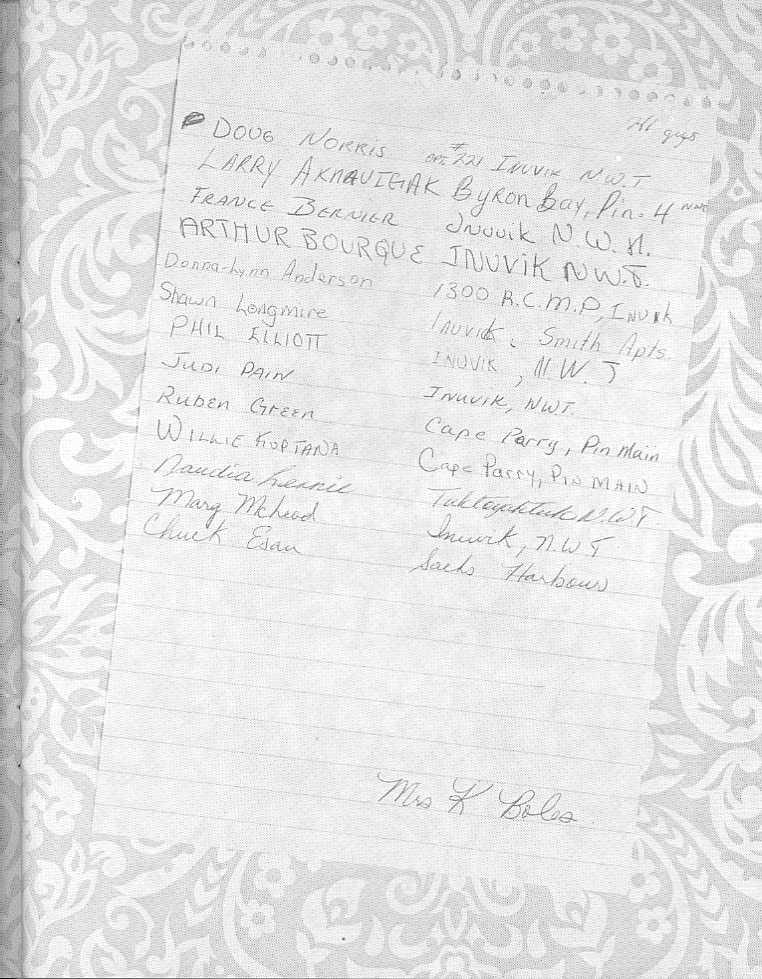 Hi guys
DOUG NORRIS APT #221 INUVIK N.W.T
LARRY AKNAVIGAK Byron Bay, Pin-4 NWT
FRANCE BERNIER INUVIK N.W.T.
ARTHUR BOURQUE INUVIK NWT.
Donna-Lynn Anderson 1300 R.C.M.P, INUVIK
Shawn Longmire INUVIK, Smith Apts.
PHIL ELLIOTT INUVIK, N.W.T
JUDI PAIN INUVIK, NWT.
RUBEN GREEN Cape Parry, Pin Main
WILLIE KUPTANA Cape Parry, PIN MAIN
Tuktoyaktuk N.W.T.
Marg McLeod Inuvik, N.W.T
Chuck Esau Sachs Harbour
Mrs K Boles